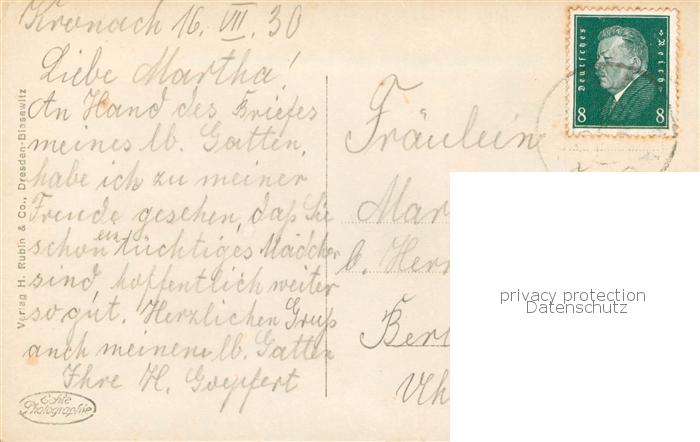 Kronach 16. VII. 30
Liebe Martha!
An Hand des Briefes
meines lb. Gatten,
habe ich zu meiner
Freude gesehen, daß Sie
schon ein tüchtiges Mädchen
sind, hoffentlich weiter
so gut. Herzlichen Gruß
auch meinem lb. Gatten
Ihre H. Goepfert
Verlag H. Rubin & Co., Dresden-Blasewitz
Echte
Photographie
Deutsches Reich
8 8
Fräulein
Mar
b. Herr
Ber
privacy protection
Datenschutz